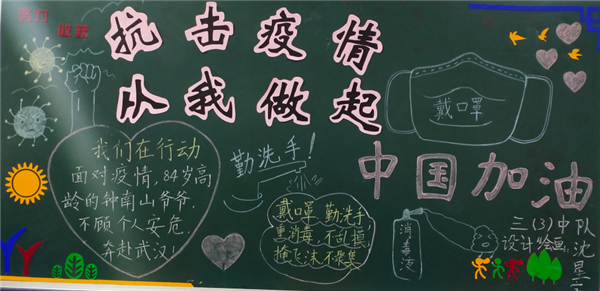 努力
收获
抗击疫情
从我做起
戴口罩
我们在行动
面对疫情,84岁高
龄的钟南山爷爷,
不顾个人安危,
奔赴武汉!
勤洗手!
戴口罩 勤洗手
重消毒 不乱摸
掩飞沫 不聚集
中国加油
消毒液
三(3)中队
设计绘画
沈星